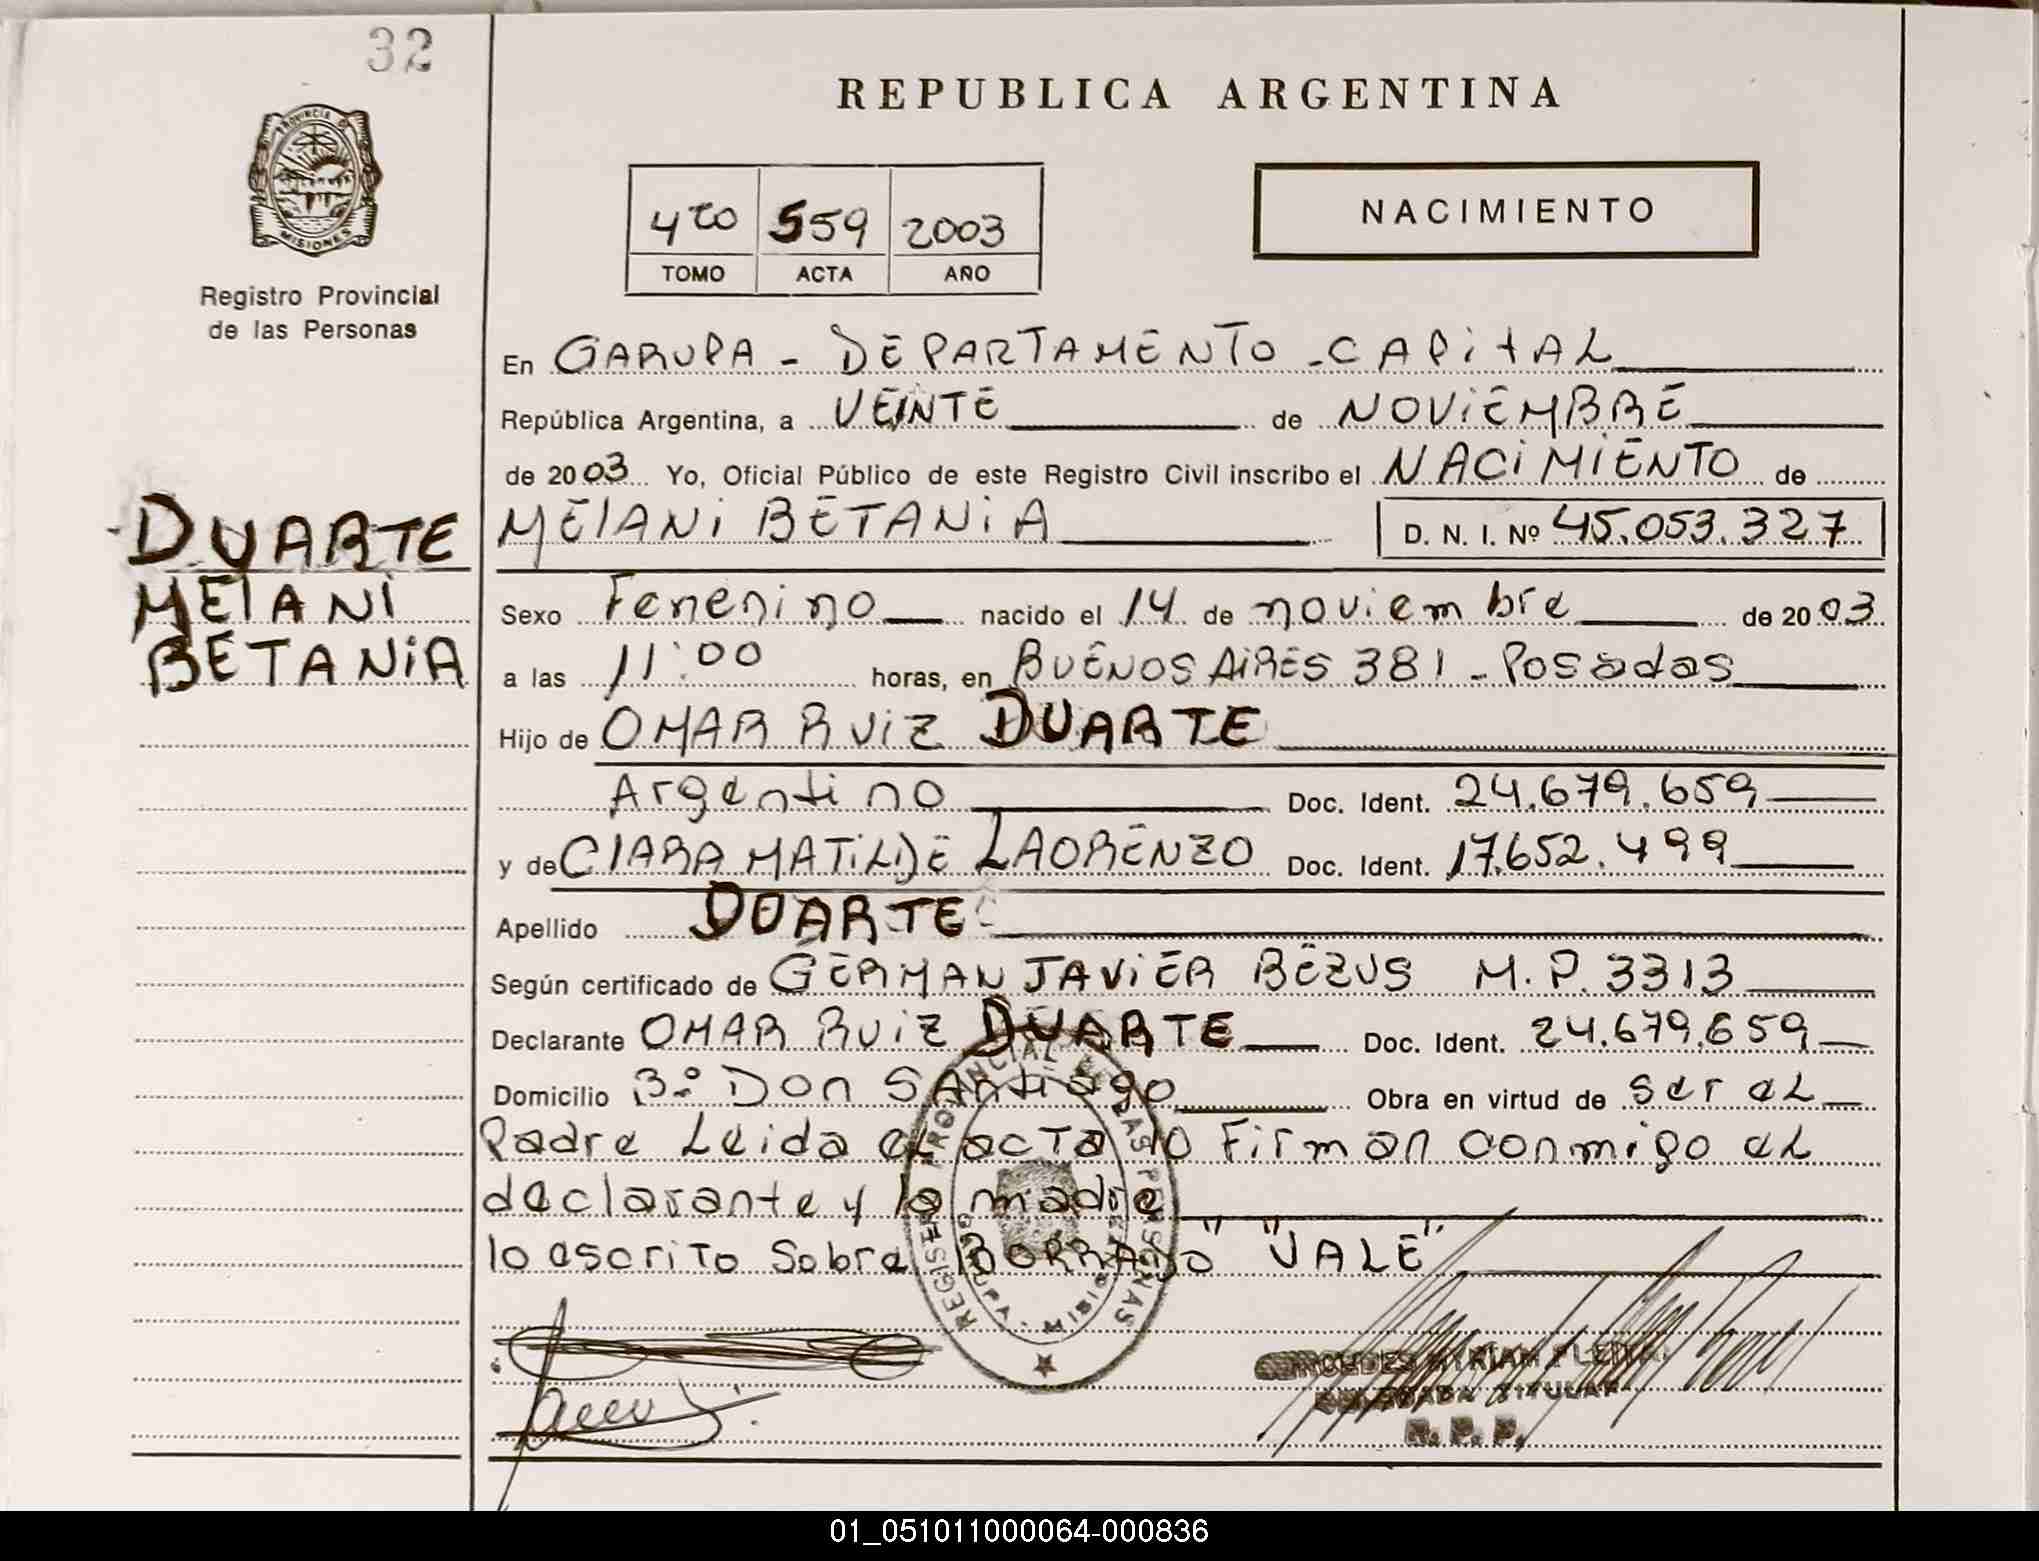 32
REPUBLICA ARGENTINA
PROVINCIA D
MISIONES
Registro Provincial
de las Personas
4to 559 2003
TOMO ACTA AÑO
NACIMIENTO
En GARUPA - DEPARTAMENTO - CAPITAL
República Argentina, a VEINTE de NOVIEMBRE
de 2003 Yo, Oficial Público de este Registro Civil inscribo el NACIMIENTO de
MELANI BETANIA D. N. I. Nº 45.053.327
DUARTE
MELANI
BETANIA
Sexo Femenino nacido el 14 de noviembre de 2003
a las 11:00 horas, en BUENOS AIRES 381 - Posadas
Hijo de OMAR RUIZ DUARTE
Argentino Doc. Ident. 24.679.659
y de CLARA MATILDE LAORENZO Doc. Ident. 17.652.499
Apellido DUARTE
Según certificado de GERMAN JAVIER BEZUS M.P. 3313
Declarante OMAR RUIZ DUARTE Doc. Ident. 24.679.659
Domicilio Bº Don Santiago Obra en virtud de ser el
Padre Leida el acta lo Firman conmigo el
declarante y la madre
lo escrito sobre "BORRADO" "VALE"
REGISTRO PROVINCIAL DE LAS PERSONAS
GARUPA - MISIONES
MYRIAM
TITULAR
R. P. P.
01_051011000064-000836